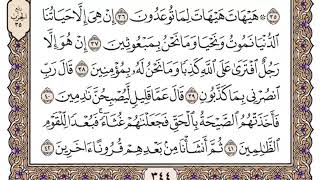 ٣٥ ۞ هَيْهَاتَ هَيْهَاتَ لِمَا تُوعَدُونَ ٣٦ إِنْ هِيَ إِلَّا حَيَاتُنَا
الدُّنْيَا نَمُوتُ وَنَحْيَا وَمَا نَحْنُ بِمَبْعُوثِينَ ٣٧ إِنْ هُوَ إِلَّا
رَجُلٌ افْتَرَىٰ عَلَى اللَّهِ كَذِبًا وَمَا نَحْنُ لَهُ بِمُؤْمِنِينَ ٣٨ قَالَ رَبِّ
انصُرْنِي بِمَا كَذَّبُونِ ٣٩ قَالَ عَمَّا قَلِيلٍ لَّيُصْبِحُنَّ نَادِمِينَ ٤٠
فَأَخَذَتْهُمُ الصَّيْحَةُ بِالْحَقِّ فَجَعَلْنَاهُمْ غُثَاءً فَبُعْدًا لِّلْقَوْمِ
الظَّالِمِينَ ٤١ ثُمَّ أَنشَأْنَا مِن بَعْدِهِمْ قُرُونًا آخَرِينَ ٤٢
٣٤٤